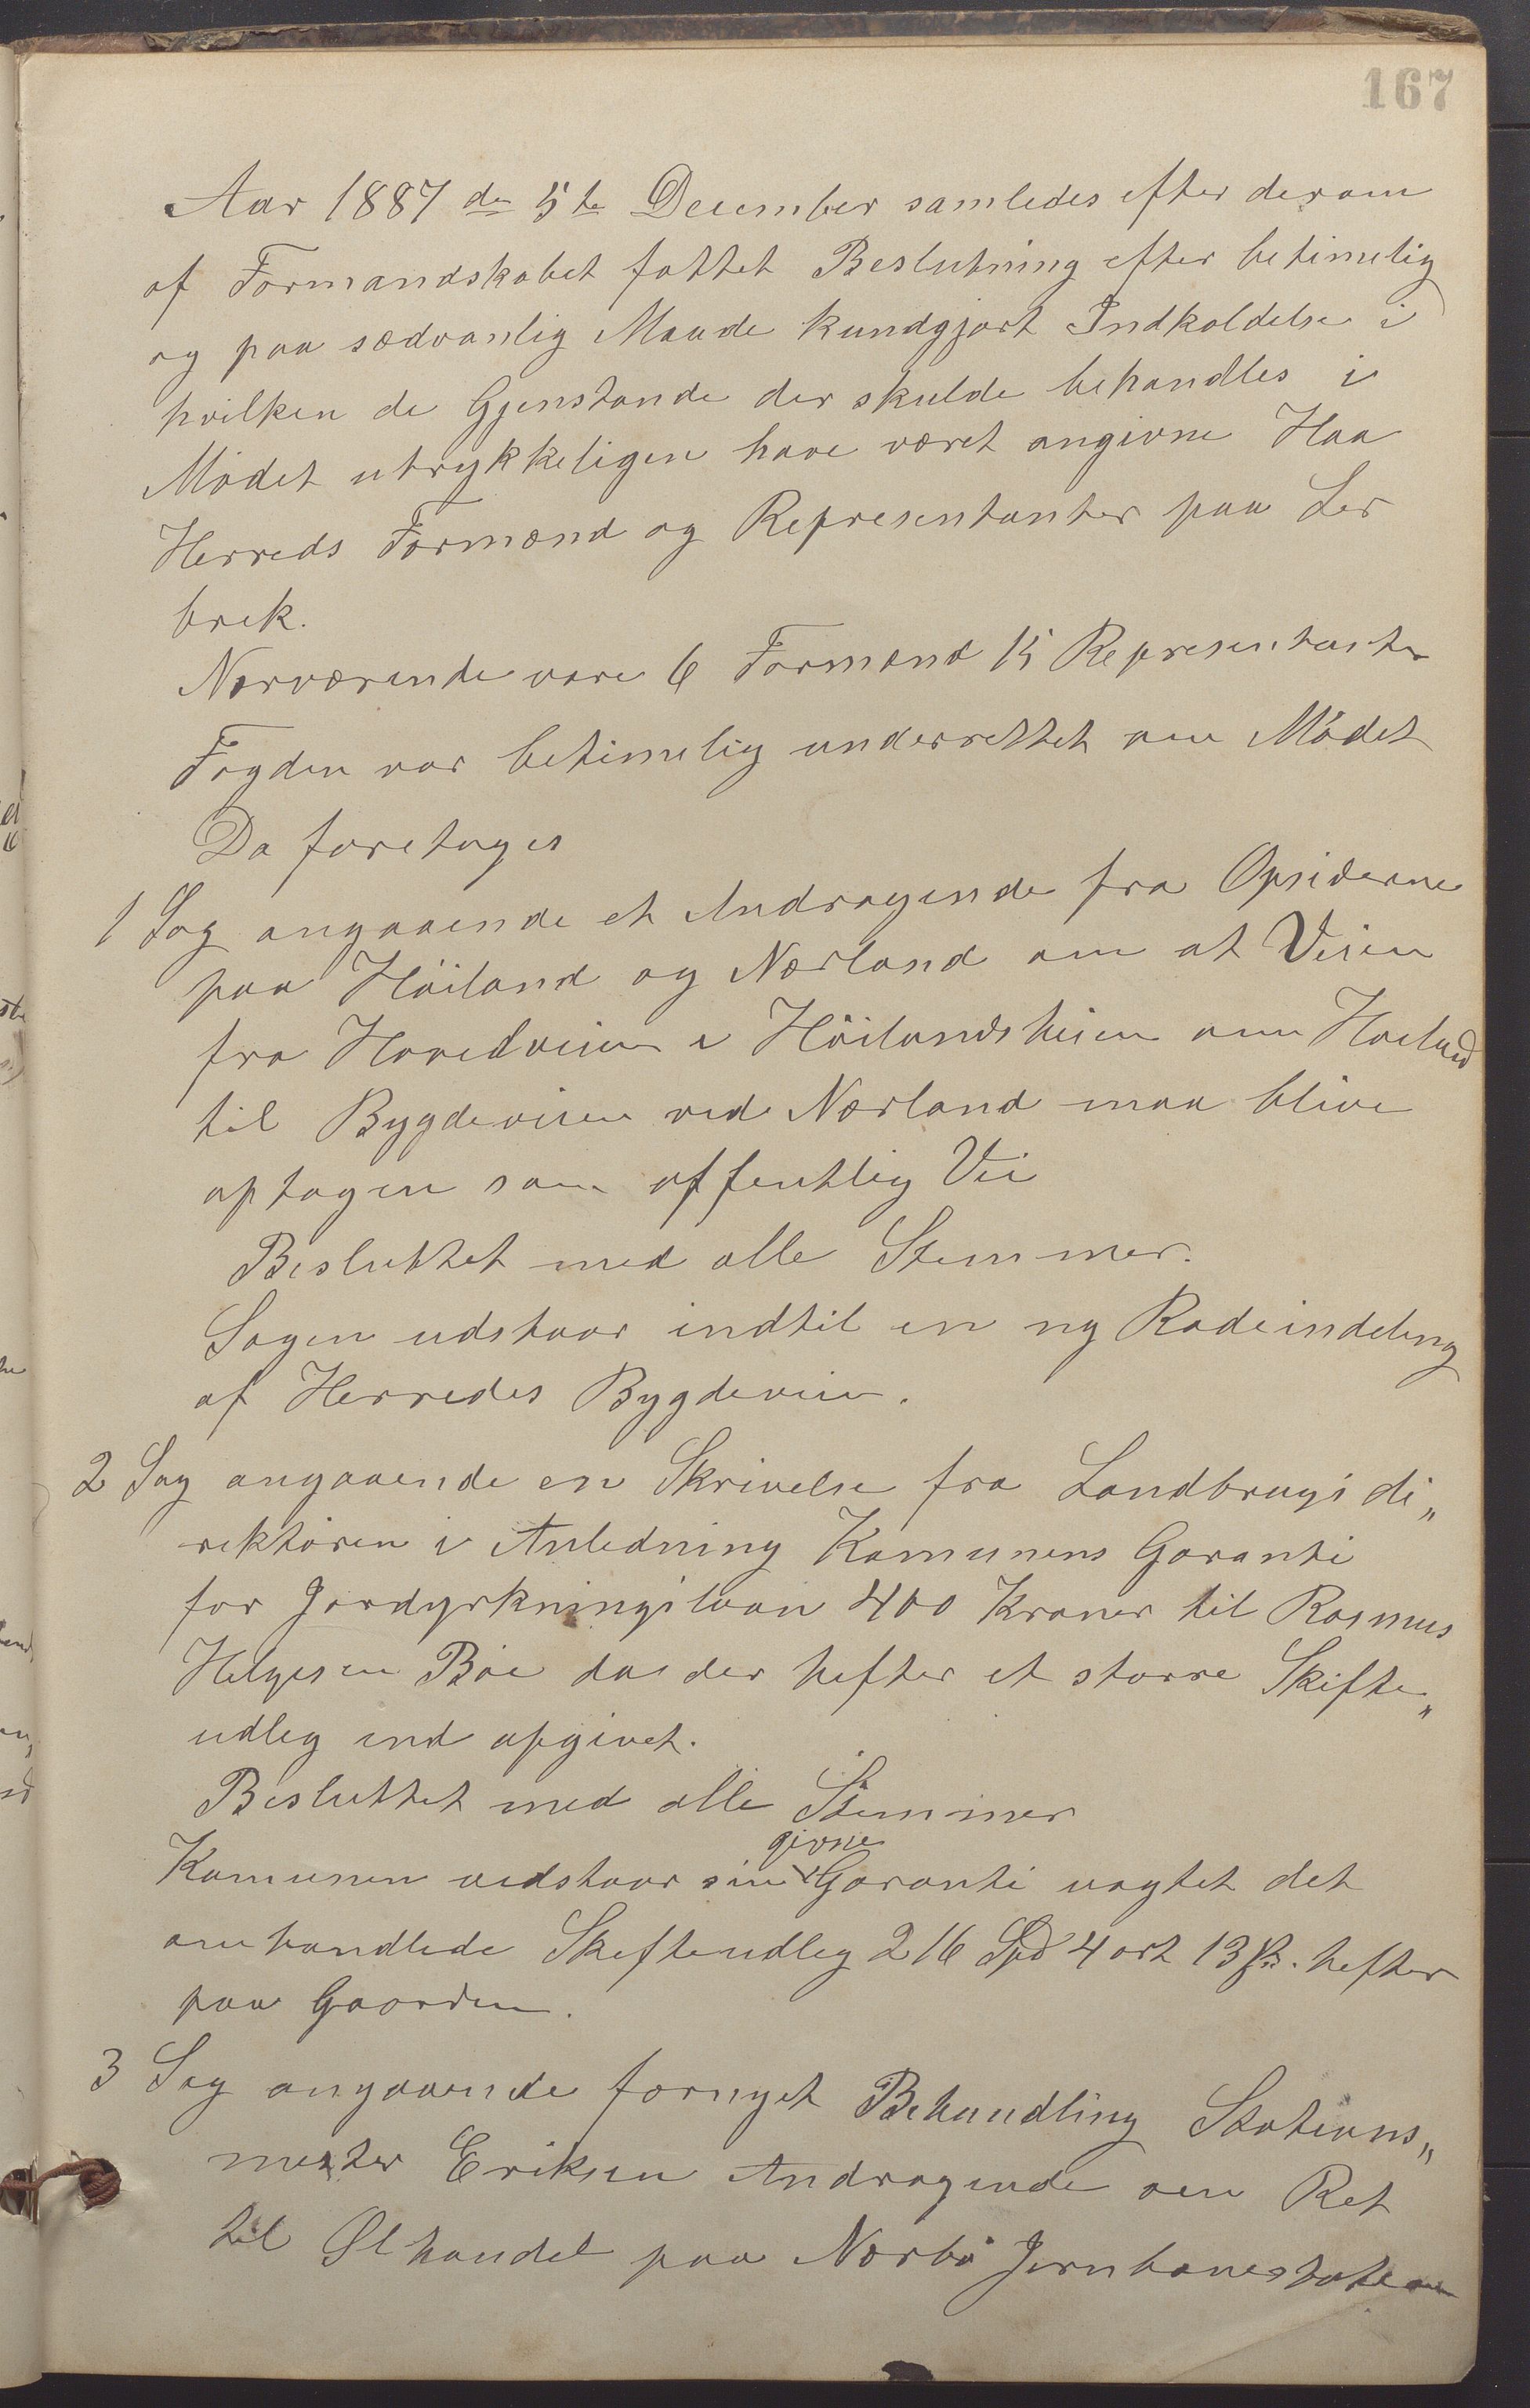 167
Aar 1887 den 5te December samledes efter derom
af Formandskabet fattet Beslutning efter betimelig
og paa sædvanlig Maade kundgjort Indkaldelse i
hvilken de Gjenstande der skulde behandles i
Mödet utrykkeligen have været angivne Haa
Herreds Formænd og Representanter paa Ler
brek.
Nærværende vare 6 Formænd 15 Representanter
Fogden var betimelig underrettet om Mödet
Da foretoges
1 Sag angaaende et Andragende fra Opsiderne
paa Höiland og Nærland om at Veien
fra Hovedveien i Höilandsheien om Höiland
til Bygdeveien ved Nærland maa blive
optagen som offentlig Vei
Besluttet med alle Stemmer.
Sagen udstaar indtil en ny Rodeindeling
af Herredes Bygdeveie.
2 Sag angaaende en Skrivelse fra Landbrugs di„
rektören i Anledning Komunens Garanti
for Jordyrkningslaan 400 Kroner til Rasmus
Helgesen Böe da der hefter et större Skifte„
udleg end opgivet.
Besluttet med alle Stemmer
givne
Komunen vedstaar sin Garanti uagtet det
omhandlede Skifteudleg 216 Spd 4 ort 13 ß. hefter
paa Gaarden.
3 Sag angaaende fornyet Behandling Stations„
mester Eriksen Andragende om Ret
til Ølhandel paa Nærbö Jernbanestation